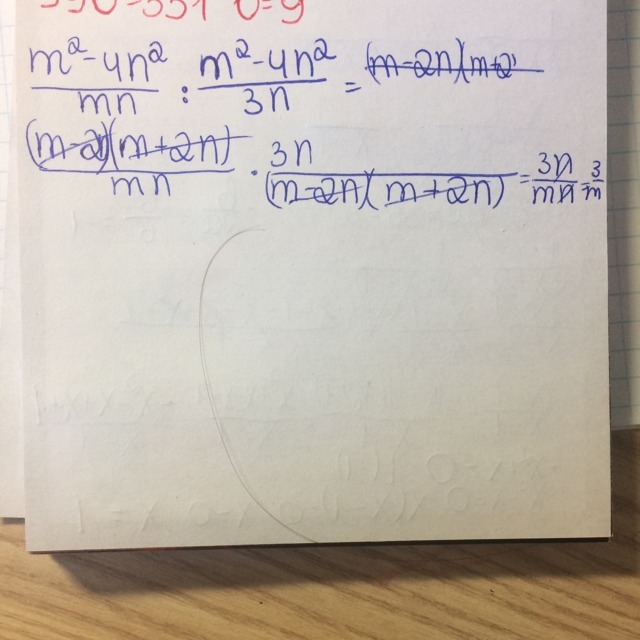 m²-4n²/mn : m²-4n²/3n = (m-2n)(m+2
(m-2n)(m+2n)/mn · 3n/(m-2n)(m+2n) = 3n/mn = 3/m